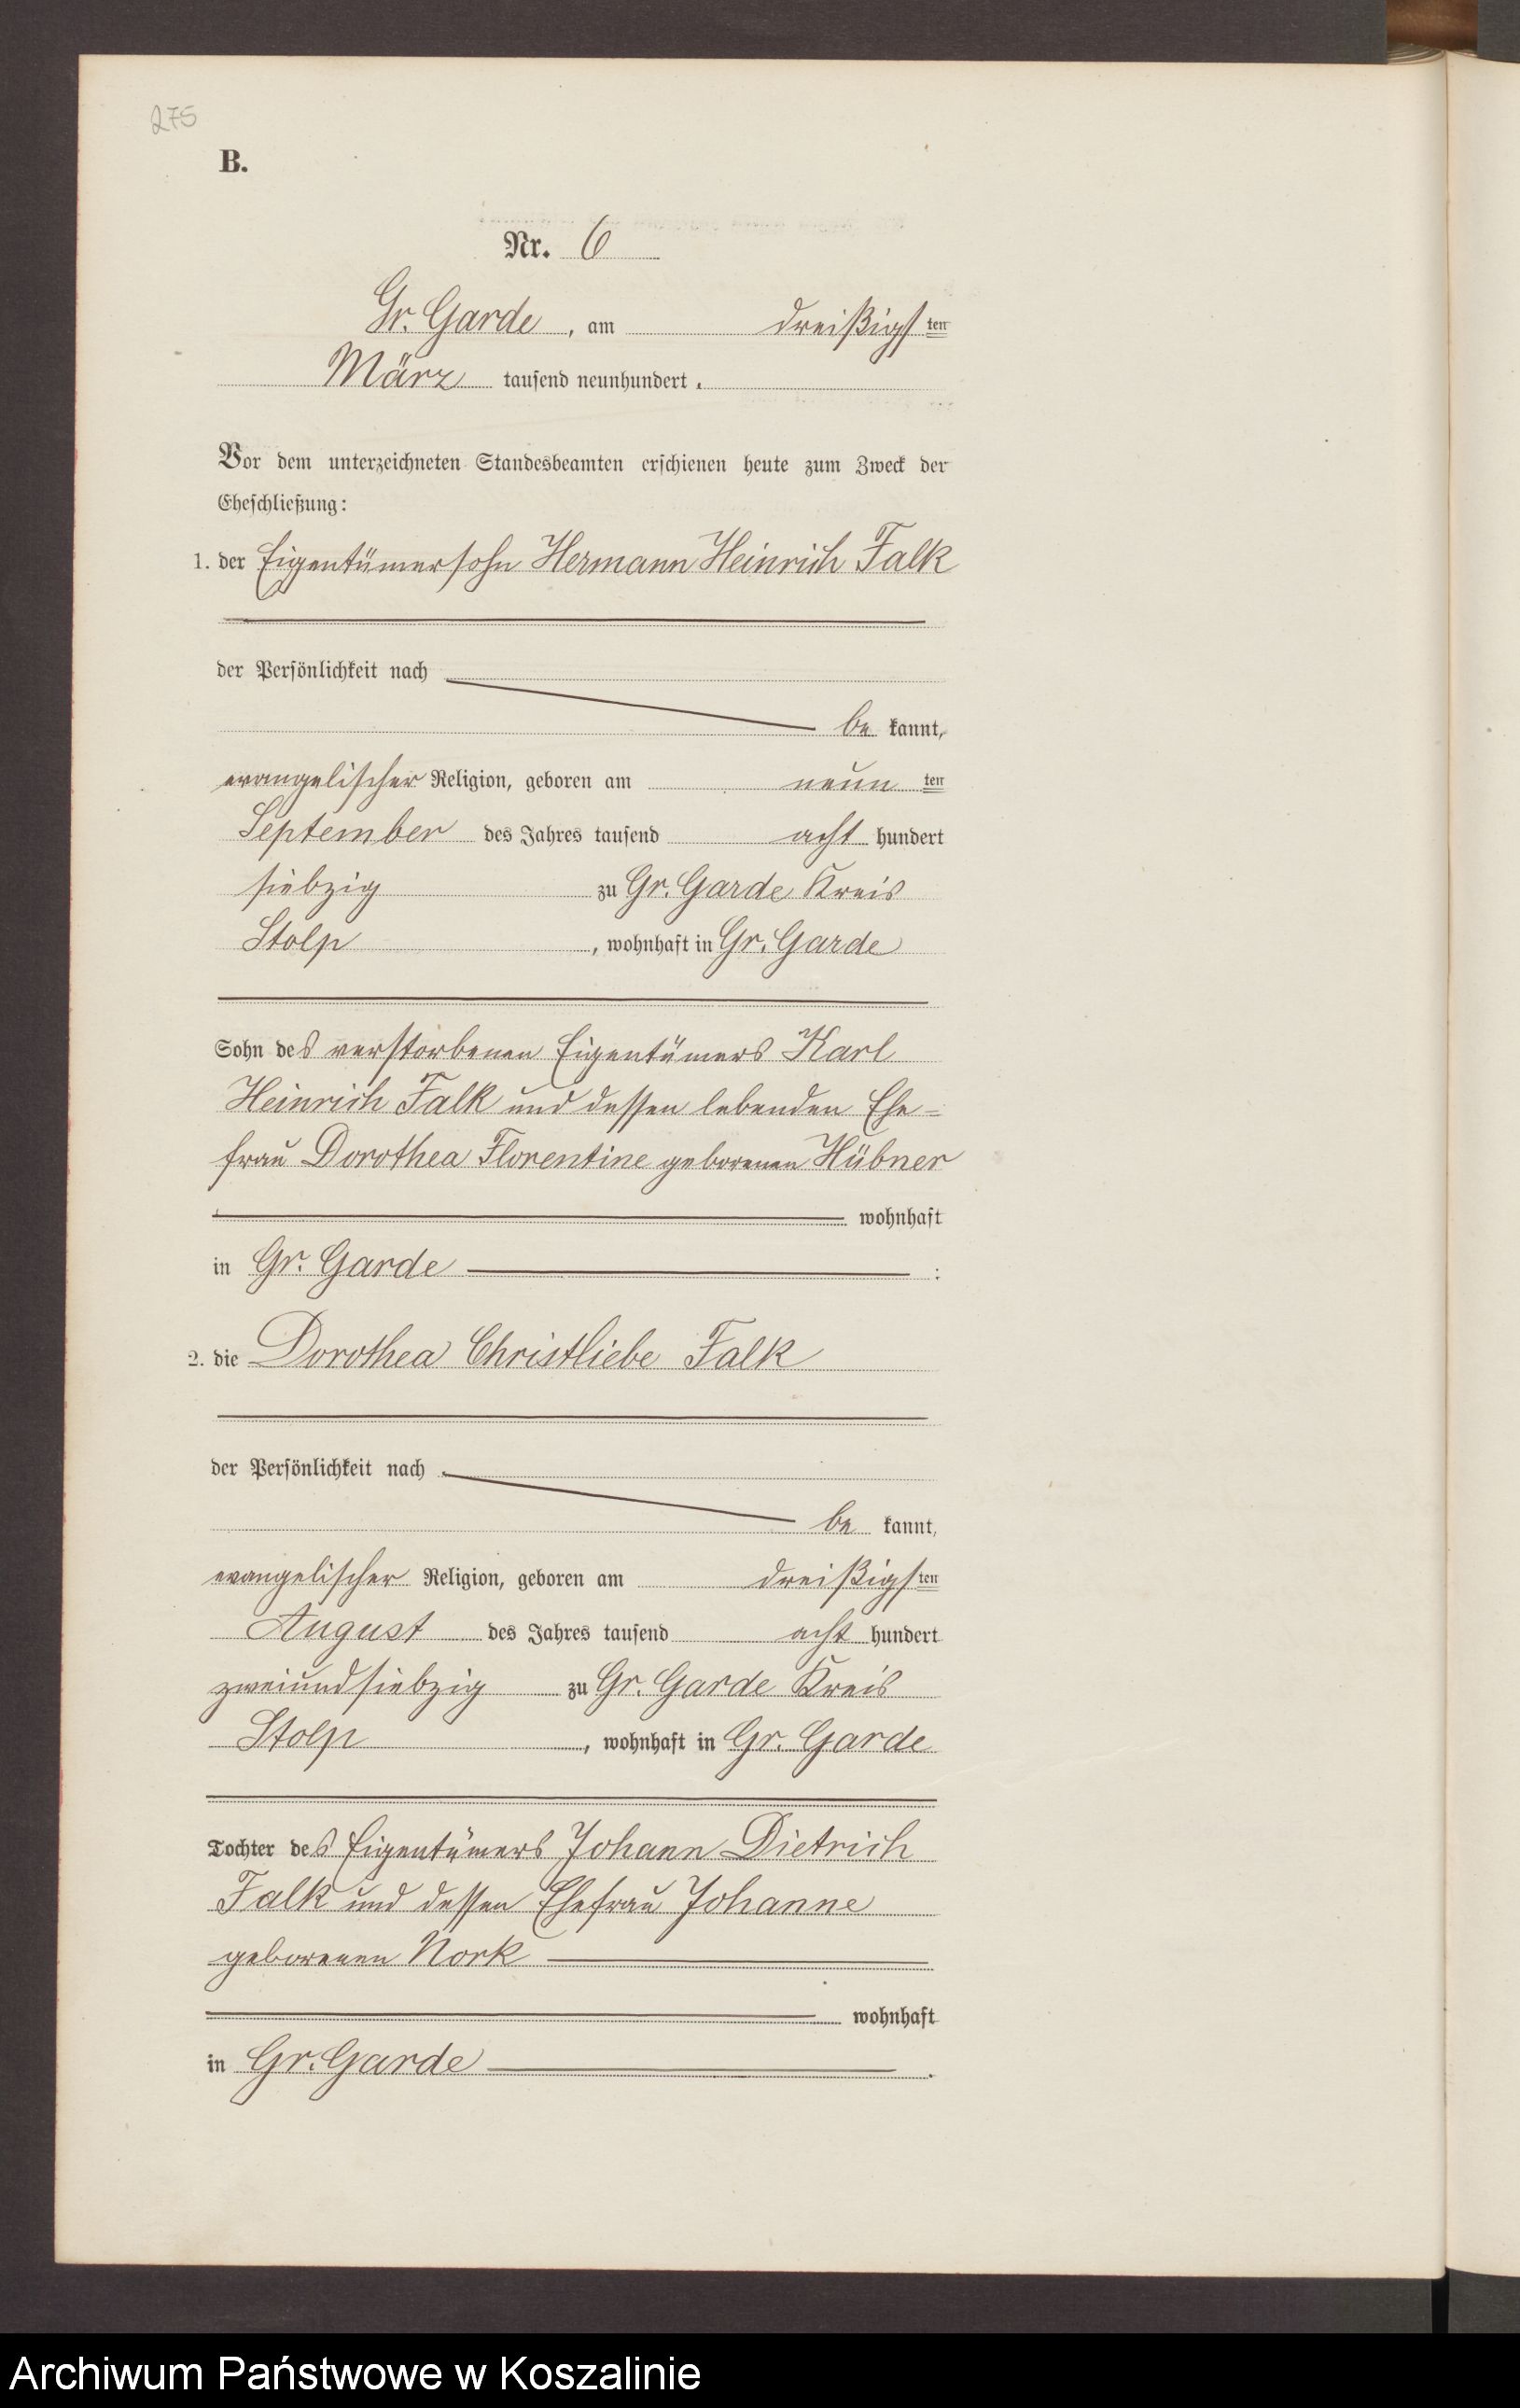 275
B.
Nr. 6
Gr. Garde, am dreißigsten
März tausend neunhundert.
Vor dem unterzeichneten Standesbeamten erschienen heute zum Zweck der
Eheschließung:
1. der Eigentümersohn Hermann Heinrich Falk
der Persönlichkeit nach
be kannt,
evangelischer Religion, geboren am neun ten
September des Jahres tausend acht hundert
siebzig zu Gr. Garde Kreis
Stolp, wohnhaft in Gr. Garde
Sohn des verstorbenen Eigentümers Karl
Heinrich Falk und dessen lebenden Ehe-
frau Dorothea Florentine geborenen Hübner
wohnhaft
in Gr. Garde :
2. die Dorothea Christliebe Falk
der Persönlichkeit nach
be kannt,
evangelischer Religion, geboren am dreißigsten
August des Jahres tausend acht hundert
zweiundsiebzig zu Gr. Garde Kreis
Stolp, wohnhaft in Gr. Garde
Tochter des Eigentümers Johann Dietrich
Falk und dessen Ehefrau Johanne
geborenen Nork
wohnhaft
in Gr. Garde.
Archiwum Państwowe w Koszalinie